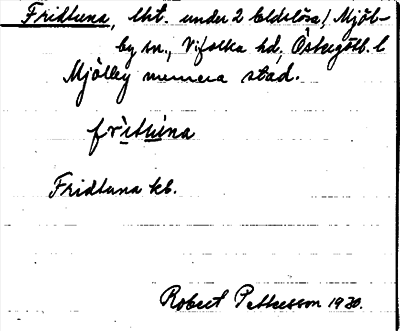 Fridtuna, lht. under 2 Eldslösa, Mjöl-
by sn., Vifolka hd, Östergötl. l
Mjölby numera stad.
frìttùna
Fridtuna kb.
Robert Pettersson 1930.